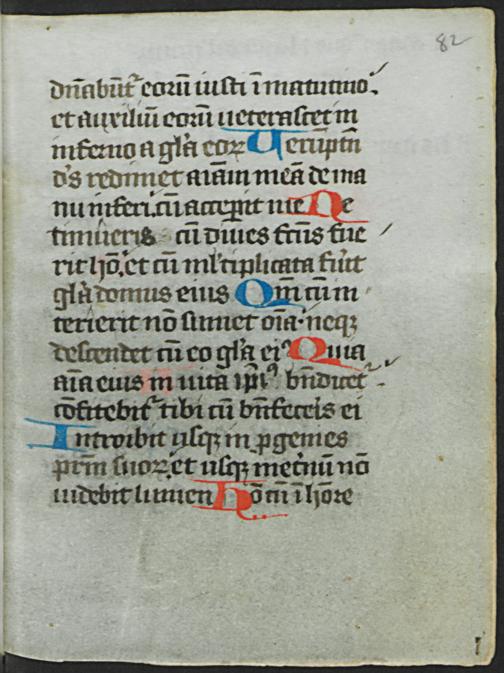 82
dn̄abūt᷑ eorū iusti ī matutino.
et auxiliū eorū ueterascet in
inferno a gl̄a eoꝝ Uerūptn̄
d̄s redimet aīam meā de ma
nu inferi. cū acceꝑit me Ne
timueris cū diues fc̄us fue
rit hō. et cū ml̓tiplicata fūit
gl̄a domus eius Qm̄ cū in
terierit nō sumet oīa. neqꝫ
descendet cū eo gl̄a eiꝰ Quia
aīa eius in uita ip̄iꝰ bn̄dicet᷑
cōfitebit᷑ tibi cū bn̄feceīs ei
Introibit usqꝫ in ꝓgenies
pr̄m suoꝝ. et usqꝫ in et̓nū nō
uidebit lumen Hō cū ī hōre